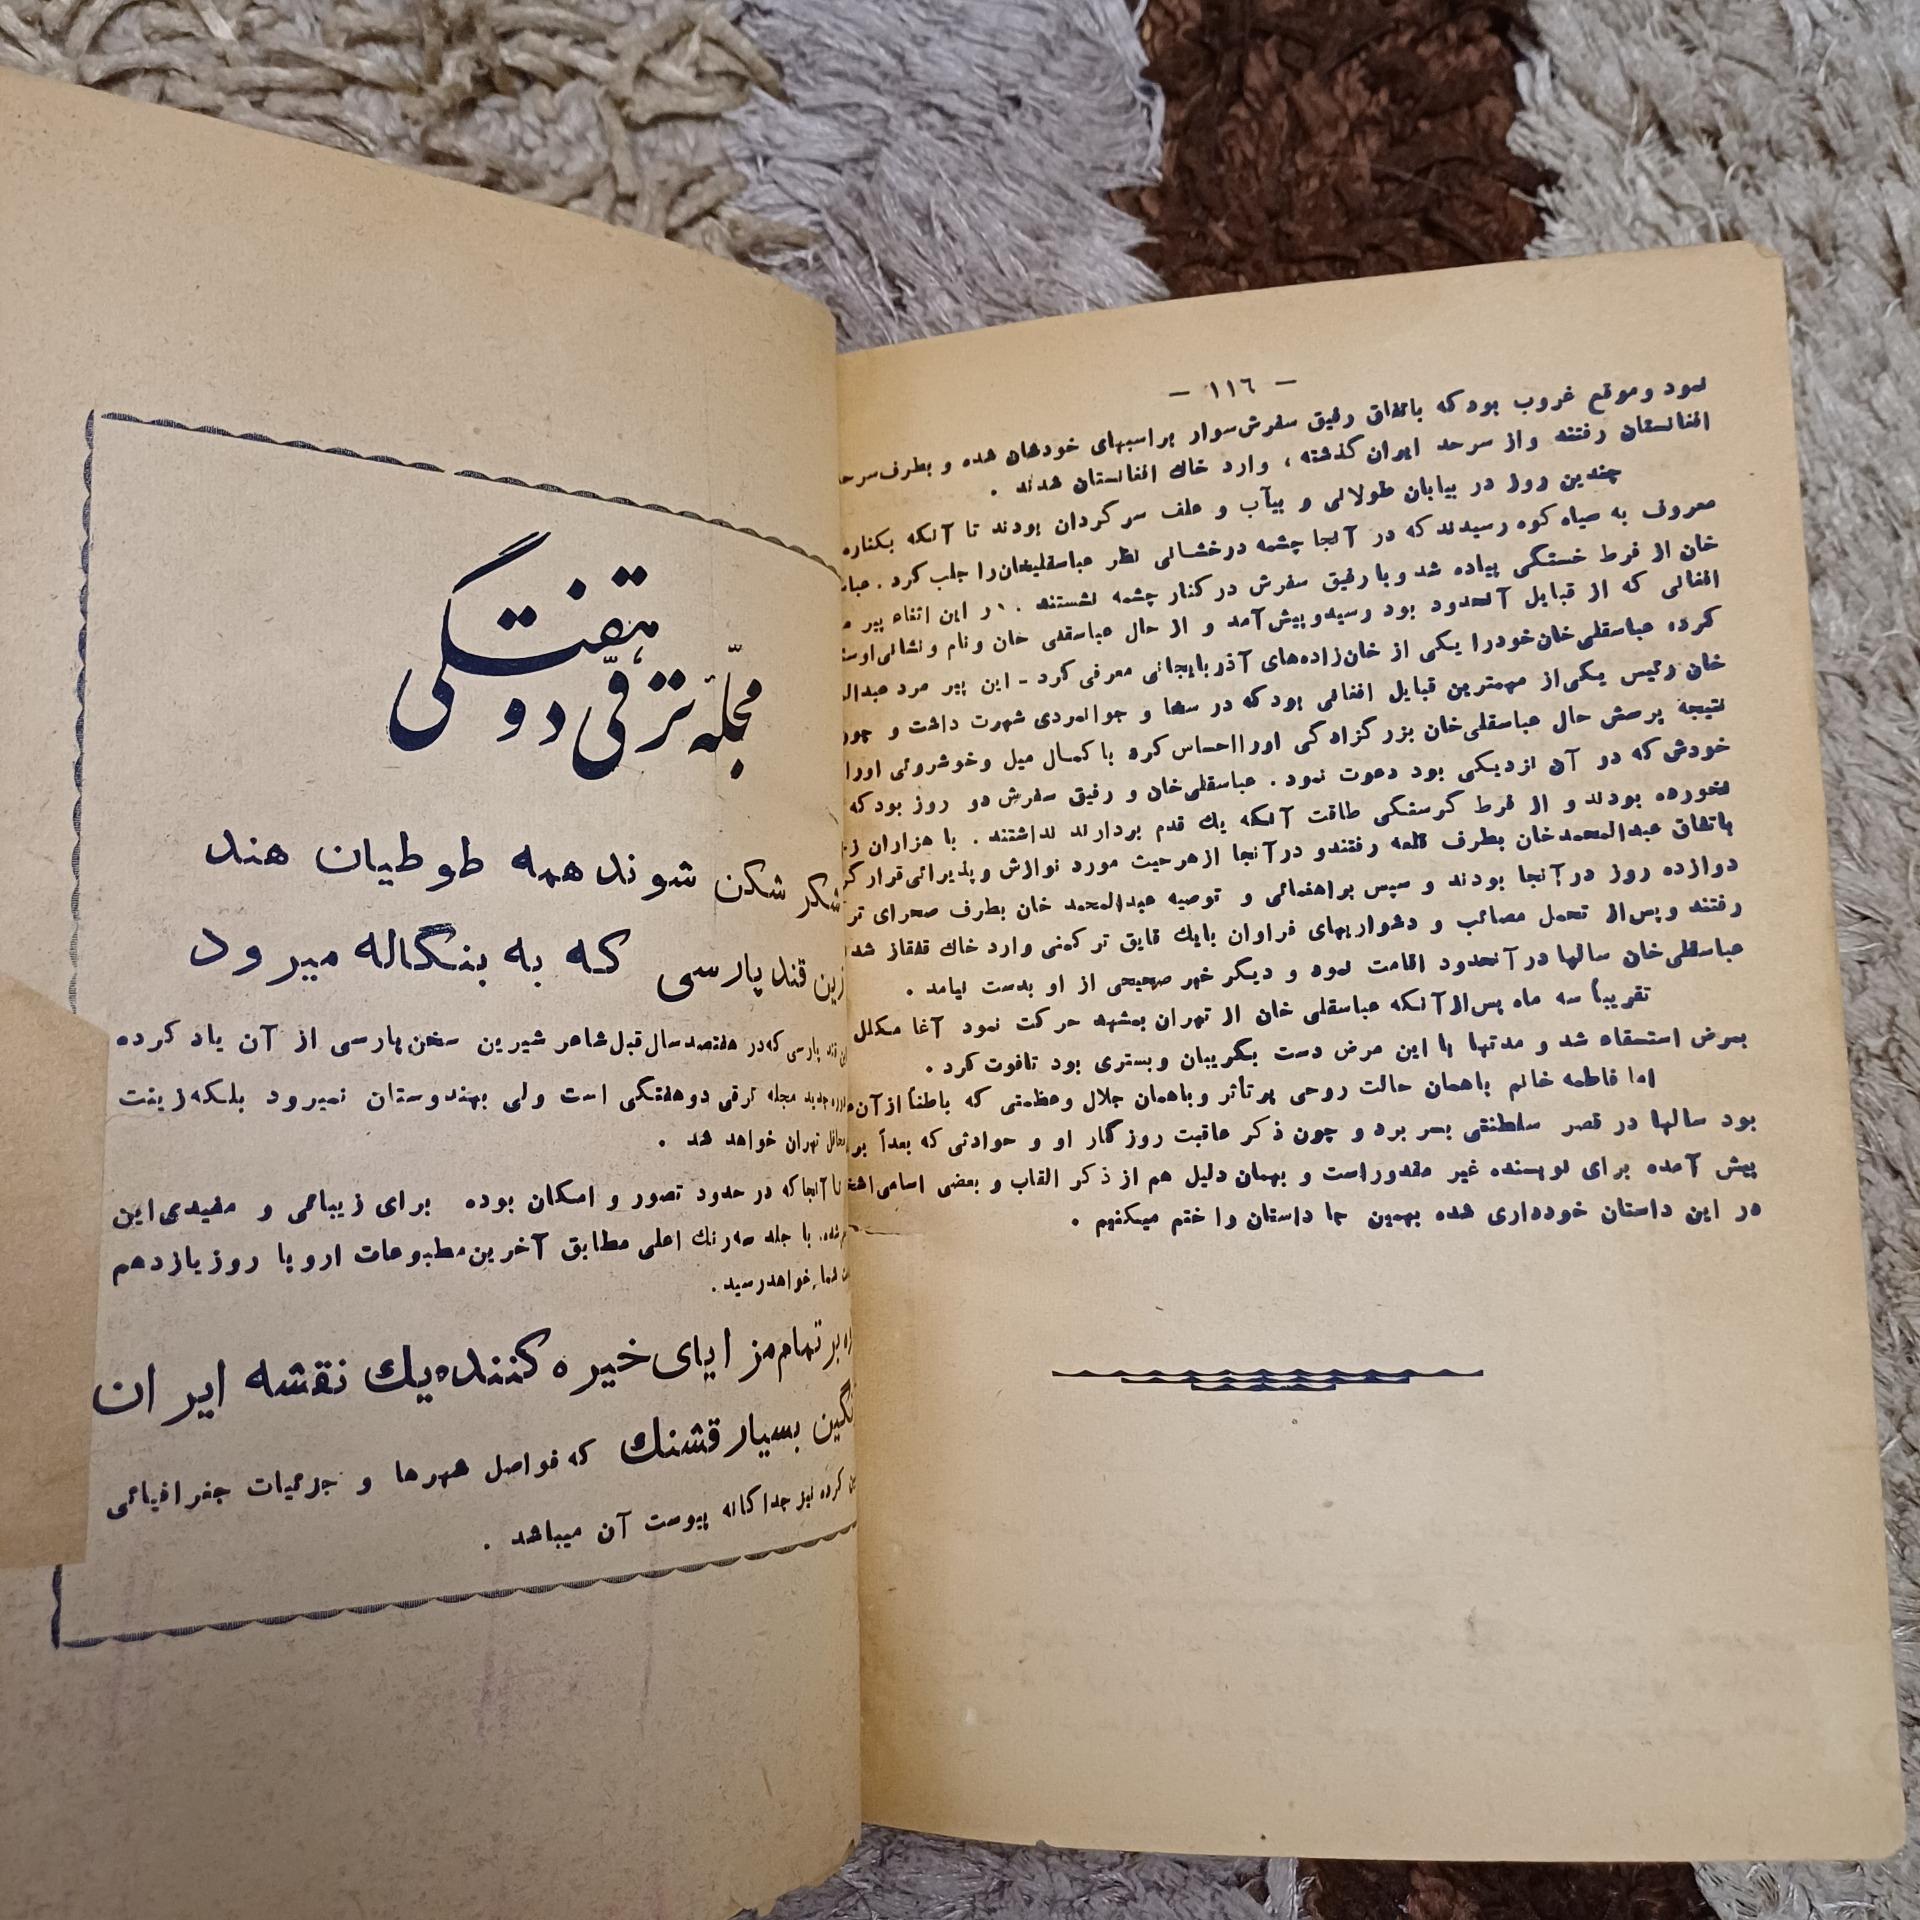 — ١١٦ —
نمود وموقع غروب بود که باتفاق رفیق سفرش سوار براسبهای خودشان شده و بطرف سرحد
افغانستان رفتند واز سرحد ایران گذشته، وارد خاك افغانستان شدند .
چندین روز در بیابان طولانی و بیآب و علف سرگردان بودند تا آنکه بکناره
معروف به سیاه کوه رسیدند که در آنجا چشمه درخشانی نظر عباسقلیخان را جلب کرد .
خان از فرط خستگی پیاده شد و با رفیق سفرش در کنار چشمه نشستند . در این اثناء پیر
افغانی که از قبایل آنحدود بود رسید و پیش آمد و از حال عباسقلی خان و نام و نشانی
کرد، عباسقلی خان خودرا یکی از خان زاده‌های آذربایجانی معرفی کرد - این پیر مرد
خان رئیس یکی از مهمترین قبایل افغانی بود که در سخا و جوانمردی شهرت داشت و چون
نتیجه پرسش حال عباسقلی خان بزرگزادگی اورا احساس کرد با کمال میل و خوشروئی اورا
خودش که در آن نزدیکی بود دعوت نمود . عباسقلی خان و رفیق سفرش دو روز بود که
نخورده بودند و از فرط گرسنگی طاقت آنکه یك قدم بردارند نداشتند . با هزاران
باتفاق عبدالمحمدخان بطرف قلعه رفتند و در آنجا از هر حیث مورد نوازش و پذیرائی قرار
دوازده روز در آنجا بودند و سپس براهنمائی و توصیه عبدالمحمد خان بطرف صحرای
رفتند و پس از تحمل مصائب و دشواریهای فراوان بایك قایق ترکمنی وارد خاك قفقاز
عباسقلی خان سالها در آنحدود اقامت نمود و دیگر خبر صحیحی از او بدست نیامد .
تقریباً سه ماه پس از آنکه عباسقلی خان از تهران بمشهد حرکت نمود آغا مکلل
بمرض استسقاء شد و مدتها با این مرض دست بگریبان و بستری بود تافوت کرد .
اما فاطمه خانم باهمان حالت روحی پرتأثر و باهمان جلال وعظمتی که باطناً از آن
بود سالها در قصر سلطنتی بسر برد و چون ذکر عاقبت روزگار او و حوادثی که بعداً
پیش آمده برای نویسنده غیر مقدور است و بهمان دلیل هم از ذکر القاب و بعضی اسامی
در این داستان خودداری شده بهمین جا داستان را ختم میکنیم .
مجلّه ترقّی دو هفتگی
شکر شکن شوند همه طوطیان هند
زین قند پارسی که به بنگاله میرود
قند پارسی که در هفتصد سال قبل شاعر شیرین سخن پارسی از آن یاد کرده
جدید مجله ترقی دوهفتگی است ولی بهندوستان نمیرود بلکه زینت
محافل تهران خواهد شد .
تا آنجا که در حدود تصور و امکان بوده برای زیبائی و مفیدی این
شده، با جلد سه رنك اعلی مطابق آخرین مطبوعات اروپا روز یازدهم
شما خواهد رسید .
بر تمام مزایای خیره کننده یك نقشه ایران
رنگین بسیار قشنك که فواصل شهرها و جزئیات جغرافیائی
کرده نیز جداگانه پیوست آن میباشد .